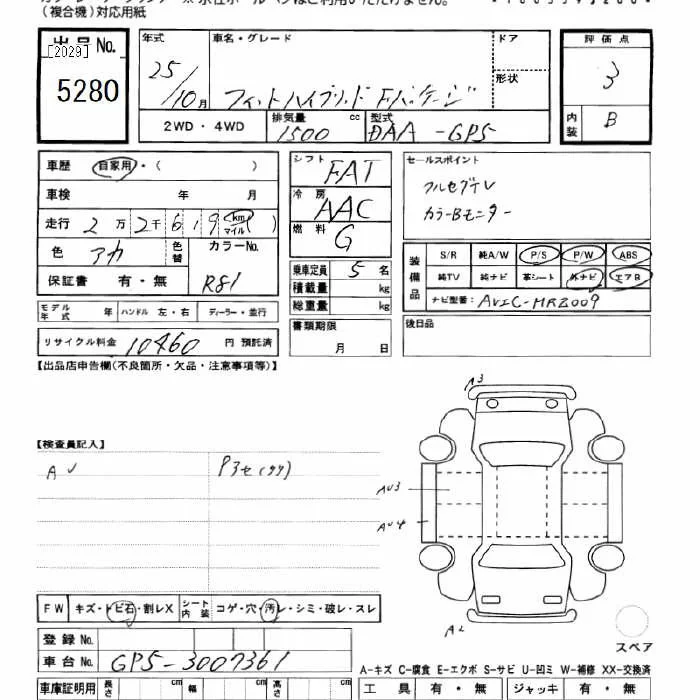 (複合機)対応用紙
出品 No.
[2029]
5280
年式 25/10月
車名・グレード フィットハイブリッド Fパッケージ
ドア
形状
評価点 3
内装 B
2WD・4WD
排気量 1500 cc
型式 DAA-GP5
車歴 自家用・( )
車検 年 月
走行 2万2千619 km マイル
色 アカ 色替 カラーNo. R81
保証書 有・無
シフト FAT
冷房 AAC
燃料 G
乗車定員 5名
積載量 kg
総重量 kg
書類期限 月 日
セールスポイント
フルセグTV
カラーBモニター
装備品
S/R 純A/W P/S P/W ABS
純TV 純ナビ 革シート 外ナビ エアB
ナビ型番: AVIC-MRZ009
後日品
モデル年式 年 ハンドル 左・右 ディーラー・並行
リサイクル料金 10460 円 預託済
【出品店申告欄(不良箇所・欠品・注意事項等)】
【検査員記入】
A3
AU3
AU4
A2
FW キズ・トビ石・割レX シート内装 コゲ・穴・汚レ・シミ・破レ・スレ
登録 No.
車台 No. GP5-3007361
スペア
A-キズ C-腐食 E-エクボ S-サビ U-凹ミ W-補修 XX-交換済
車庫証明用 長さ cm 幅 cm 高さ cm
工具 有・無 ジャッキ 有・無